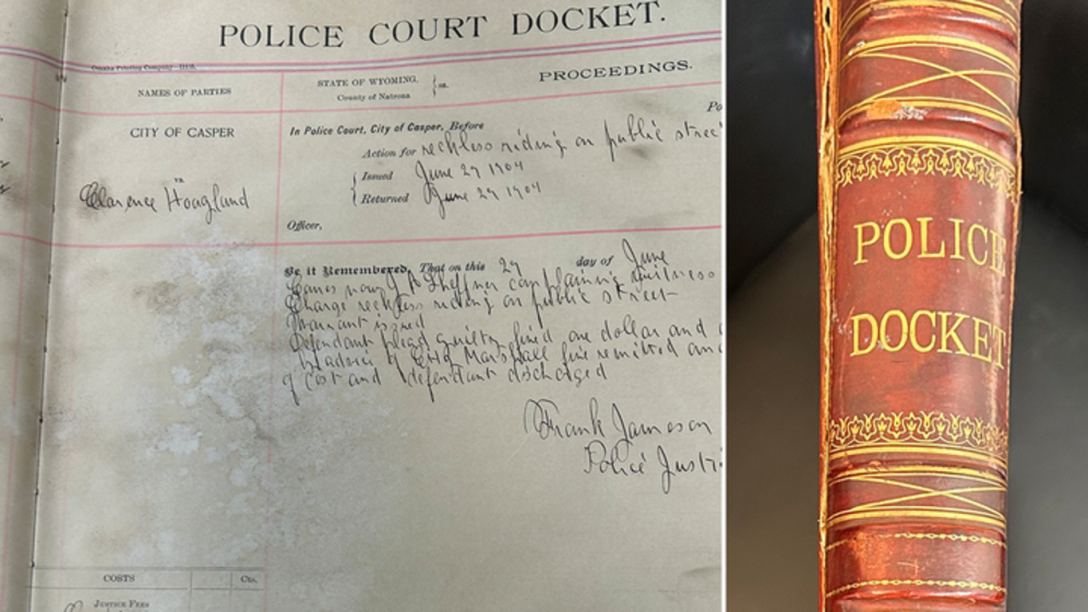 POLICE COURT DOCKET.
Omaha Printing Company
NAMES OF PARTIES
STATE OF WYOMING,
County of Natrona
ss.
PROCEEDINGS.
CITY OF CASPER
vs.
Clarence Hoagland
In Police Court, City of Casper, Before
Po
Action for reckless riding on public stree
Issued June 27 1904
Returned June 27 1904
Officer,
Be it Remembered, That on this 27 day of June
Comes now Sheffner complaining witness
Charge reckless riding on public street
Warrant issued
Defendant plead guilty fined one dollar and
by advice of City Marshall fine remitted
of cost and defendant discharged
Frank Jameson
Police Justi
COSTS
Cts.
JUSTICE FEES
POLICE
DOCKET